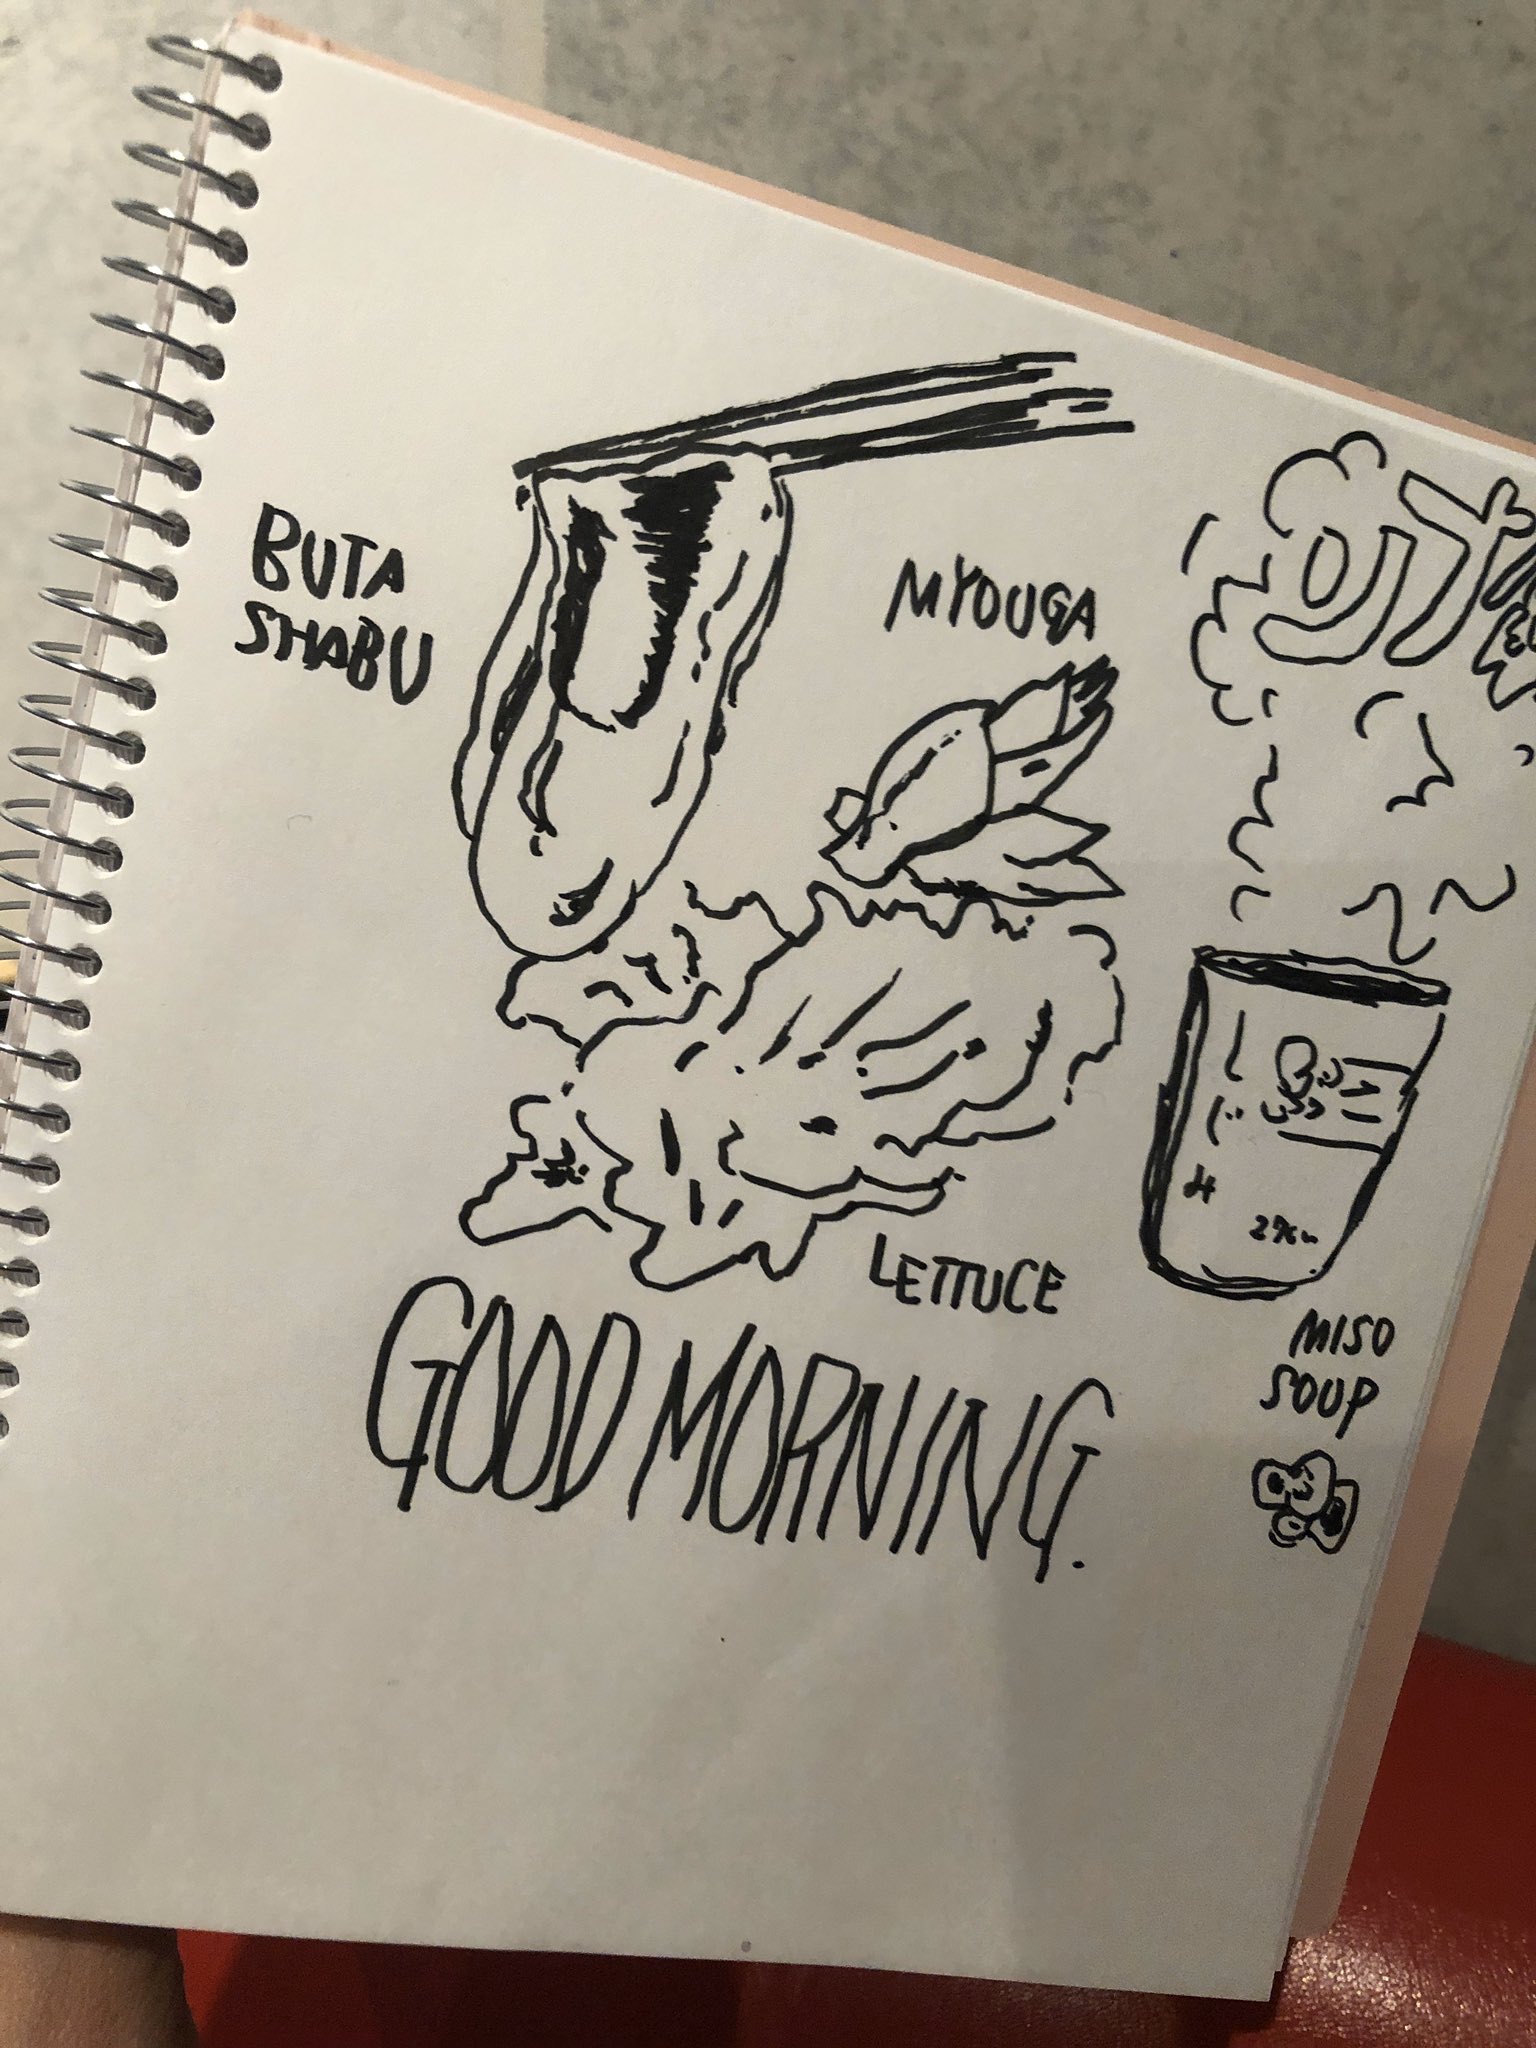 BUTA
SHABU
MYOUGA
LETTUCE
GOOD MORNING.
MISO
SOUP